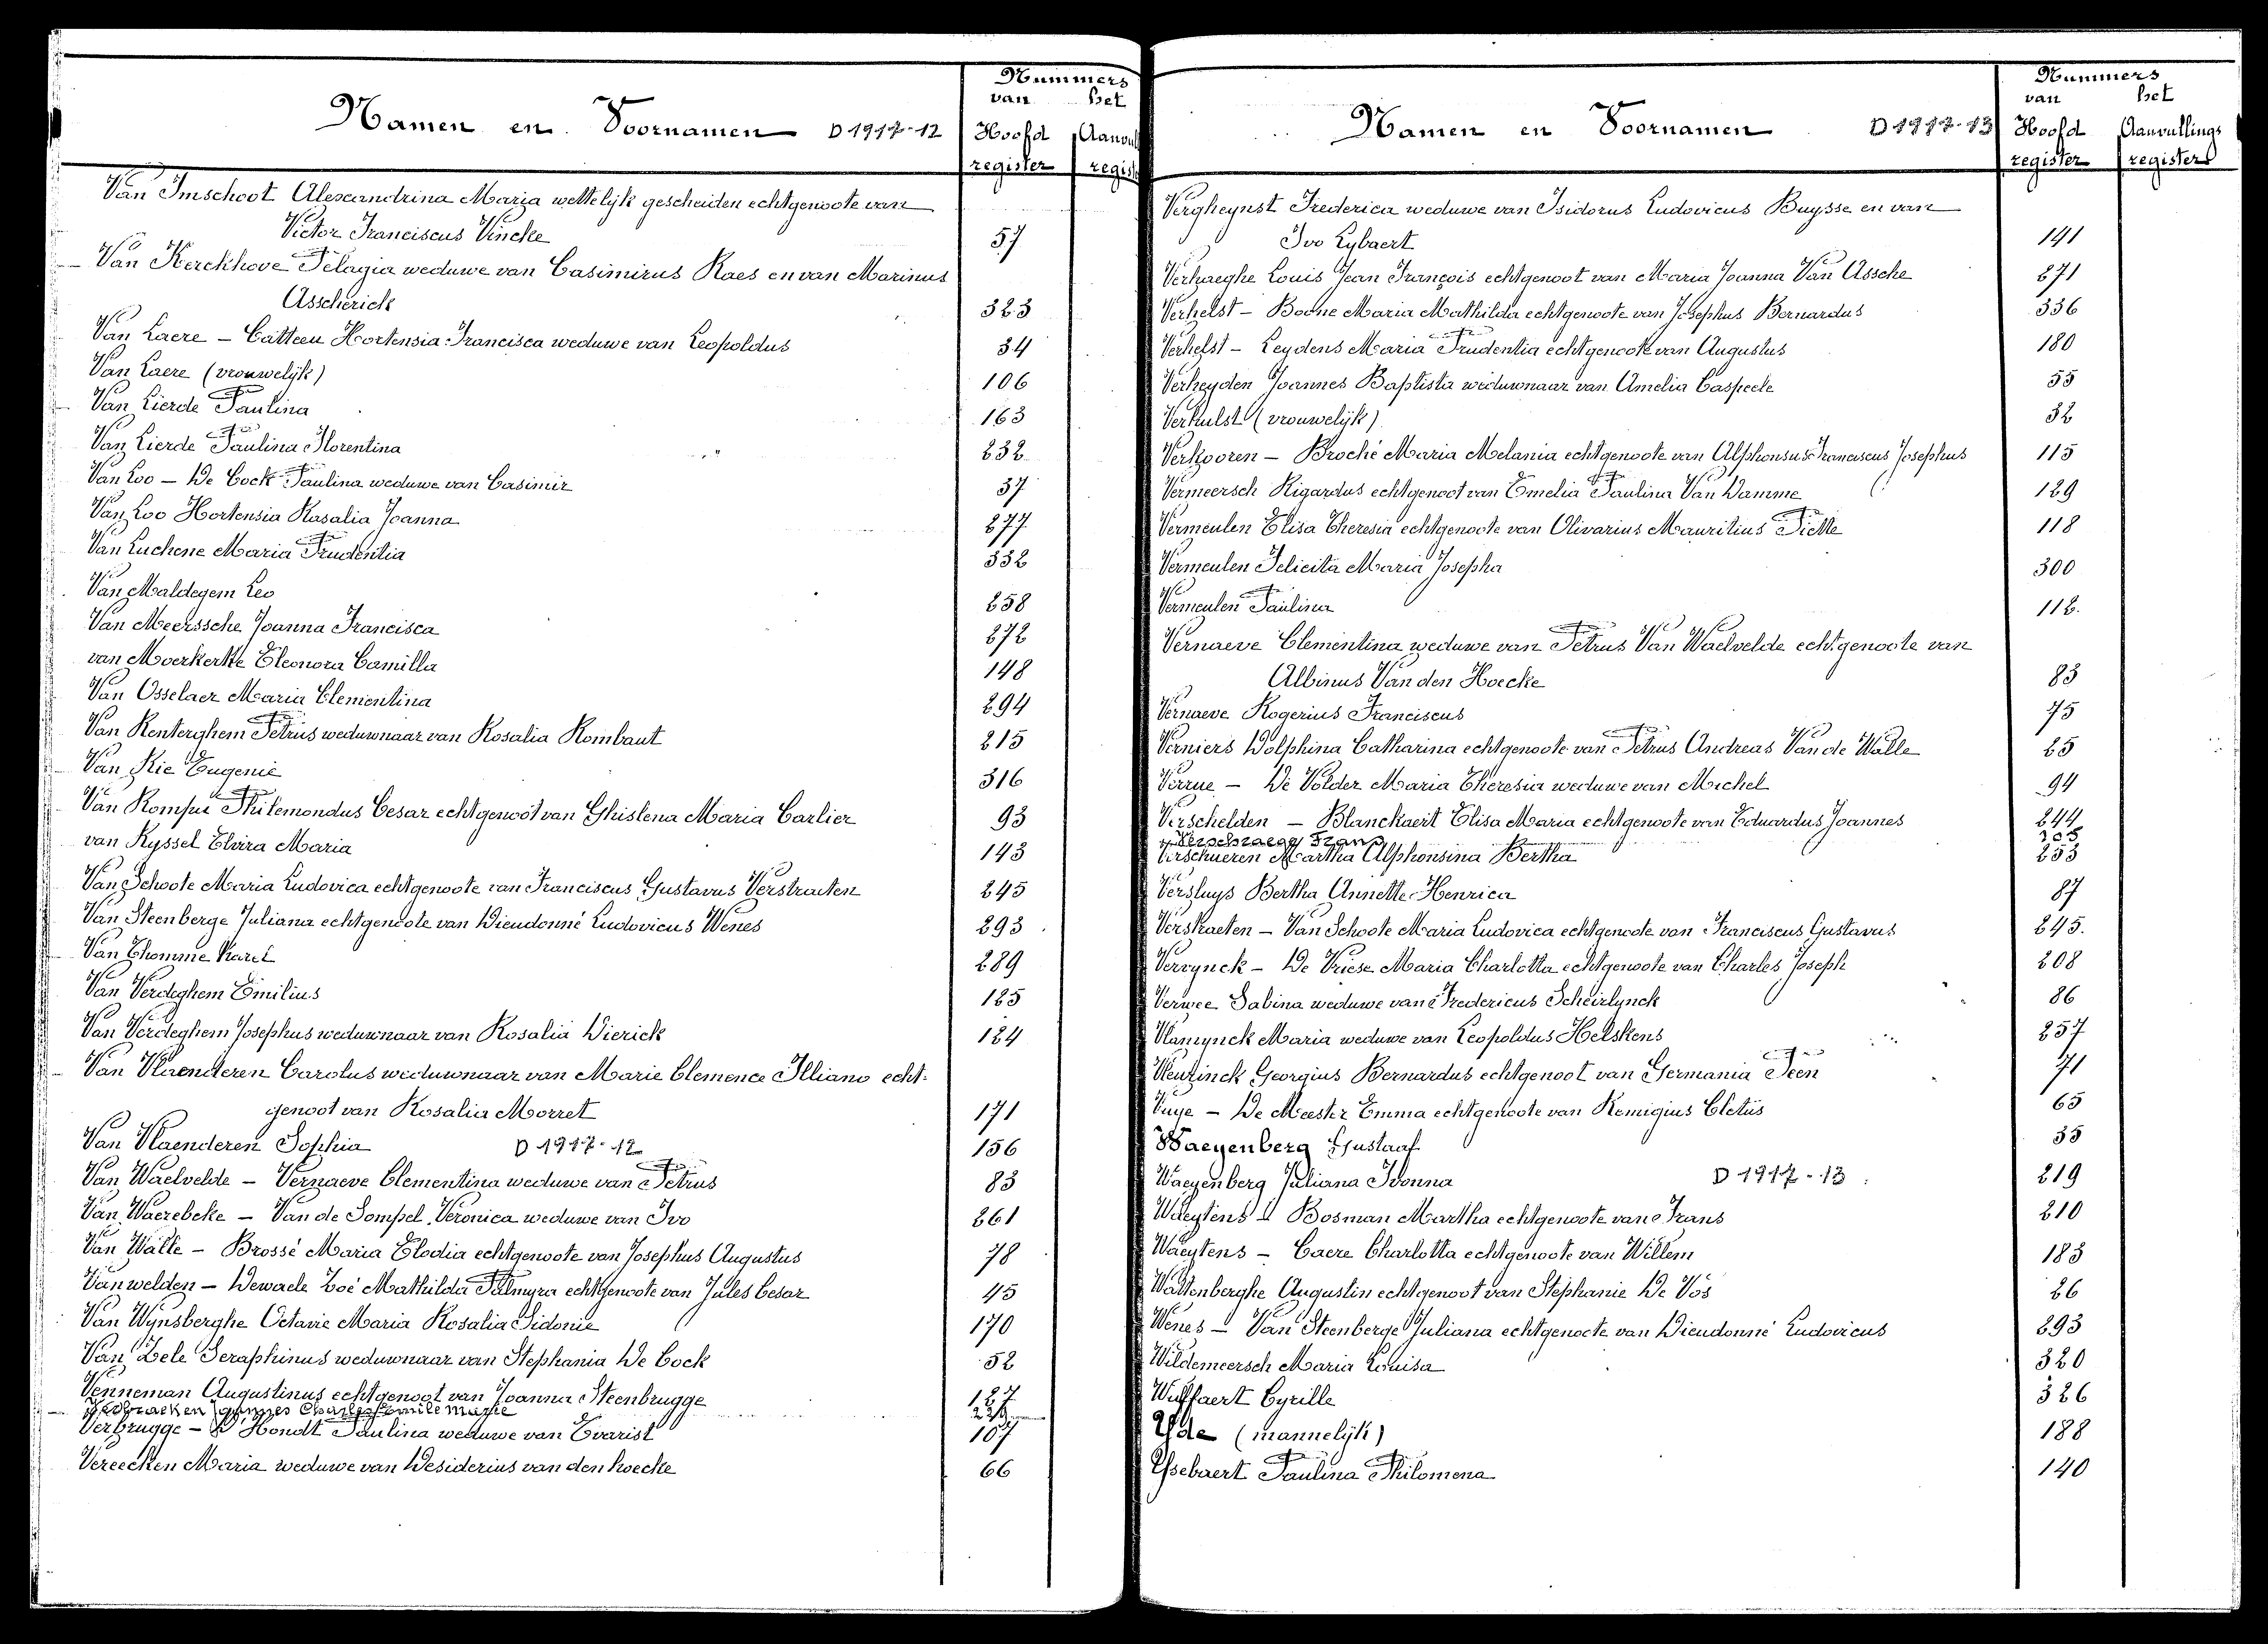 Namen en Voornamen D 1917-12
Nummers
van het
Hoofd Aanvull
register regist
Van Imschoot Alexandrina Maria wettelijk gescheiden echtgenoote van
Victor Franciscus Vincke 57
Van Kerckhove Pelagia weduwe van Casimirus Raes en van Marinus
Asscherick 323
Van Laere - Catteeu Hortensia Francisca weduwe van Leopoldus 34
Van Laere (vrouwelijk) 106
Van Lierde Paulina 163
Van Lierde Paulina Florentina 232
Van Loo - De Cock Paulina weduwe van Casimir 37
Van Loo Hortensia Rosalia Joanna 277
Van Luchene Maria Prudentia 332
Van Maldegem Leo 258
Van Meerssche Joanna Francisca 272
van Moerkerke Eleonora Camilla 148
Van Osselaer Maria Clementina 294
Van Renterghem Petrus weduwnaar van Rosalia Rombaut 215
Van Rie Eugenie 316
Van Rompu Philemondus Cesar echtgenoot van Ghislena Maria Carlier 93
van Ryssel Elvira Maria 143
Van Schoote Maria Ludovica echtgenoote van Franciscus Gustavus Verstraeten 245
Van Steenberge Juliana echtgenoote van Dieudonné Ludovicus Wenes 293
Van Thomme Karel 289
Van Verdeghem Emilius 125
Van Verdeghem Josephus weduwnaar van Rosalia Dierick 124
Van Vlaenderen Carolus weduwnaar van Marie Clemence Illiano echt-
genoot van Rosalia Morret 171
Van Vlaenderen Sophia D 1917-12 156
Van Waelvelde - Vernaeve Clementina weduwe van Petrus 83
Van Waerebeke - Van de Sompel Veronica weduwe van Ivo 261
Van Walle - Brossé Maria Elodia echtgenoote van Josephus Augustus 78
Vanwelden - Dewaele Zoé Mathilda Palmyra echtgenoote van Jules Cesar 45
Van Wynsberghe Octavie Maria Rosalia Sidonie 170
Van Zele Seraphinus weduwnaar van Stephania De Cock 52
Venneman Augustinus echtgenoot van Joanna Steenbrugge 127
Charles Emile Marie
Verbrugge - D'Hondt Paulina weduwe van Evarist 107
Vereecken Maria weduwe van Desiderius van den hoecke 66
Namen en Voornamen D 1917-13
Nummers
van het
Hoofd Aanvullings
register registers
Vergheynst Frederica weduwe van Isidorus Ludovicus Buysse en van
Ivo Lybaert 141
Verhaeghe Louis Jean François echtgenoot van Maria Joanna Van Assche 271
Verhelst - Boone Maria Mathilda echtgenoote van Josephus Bernardus 336
Verhelst - Leydens Maria Prudentia echtgenoote van Augustus 180
Verheyden Joannes Baptista weduwnaar van Amelia Caspeele 55
Verhulst (vrouwelijk) 32
Verhooren - Broché Maria Melania echtgenoote van Alphonsus Franciscus Josephus 115
Vermeersch Rigardus echtgenoot van Emelia Paulina Van Damme 129
Vermeulen Elisa Theresia echtgenoote van Olivarius Mauritius Piette 118
Vermeulen Felicita Maria Josepha 300
Vermeulen Paulina 112.
Vernaeve Clementina weduwe van Petrus Van Waelvelde echtgenoote van
Albinus Van den Hoecke 83
Vernaeve Rogerius Franciscus 75
Verniers Dolphina Catharina echtgenoote van Petrus Andreas Van de Walle 25
Verrue - De Volder Maria Theresia weduwe van Michel 94
Verschelden - Blanckaert Elisa Maria echtgenoote van Eduardus Joannes 244
Verschraegen Frans
Verschueren Martha Alphonsina Bertha 253
Versluys Bertha Annette Henrica 87
Verstraeten - Van Schoote Maria Ludovica echtgenoote van Franciscus Gustavus 245.
Vervynck - De Vriese Maria Charlotta echtgenoote van Charles Joseph 208
Verwee Sabina weduwe van Fredericus Scheirlynck 86
Vlamynck Maria weduwe van Leopoldus Helskens 257
Georgius Bernardus echtgenoot van Germania Peen 71
Vuye - De Meester Emma echtgenoote van Remigius Cletus 65
Waeyenberg Gustaaf 35
Waeyenberg Juliana Ivonna D 1917-13 219
Waeytens - Bosman Martha echtgenoote van Frans 210
Waeytens - Caere Charlotta echtgenoote van Willem 183
Wattenberghe Augustin echtgenoot van Stephanie De Vos 26
Wenes - Van Steenberge Juliana echtgenoote van Dieudonné Ludovicus 293
Wildemeersch Maria Louisa 320
Wulffaert Cyrille 326
Yde (mannelijk) 188
Ysebaert Paulina Philomena 140